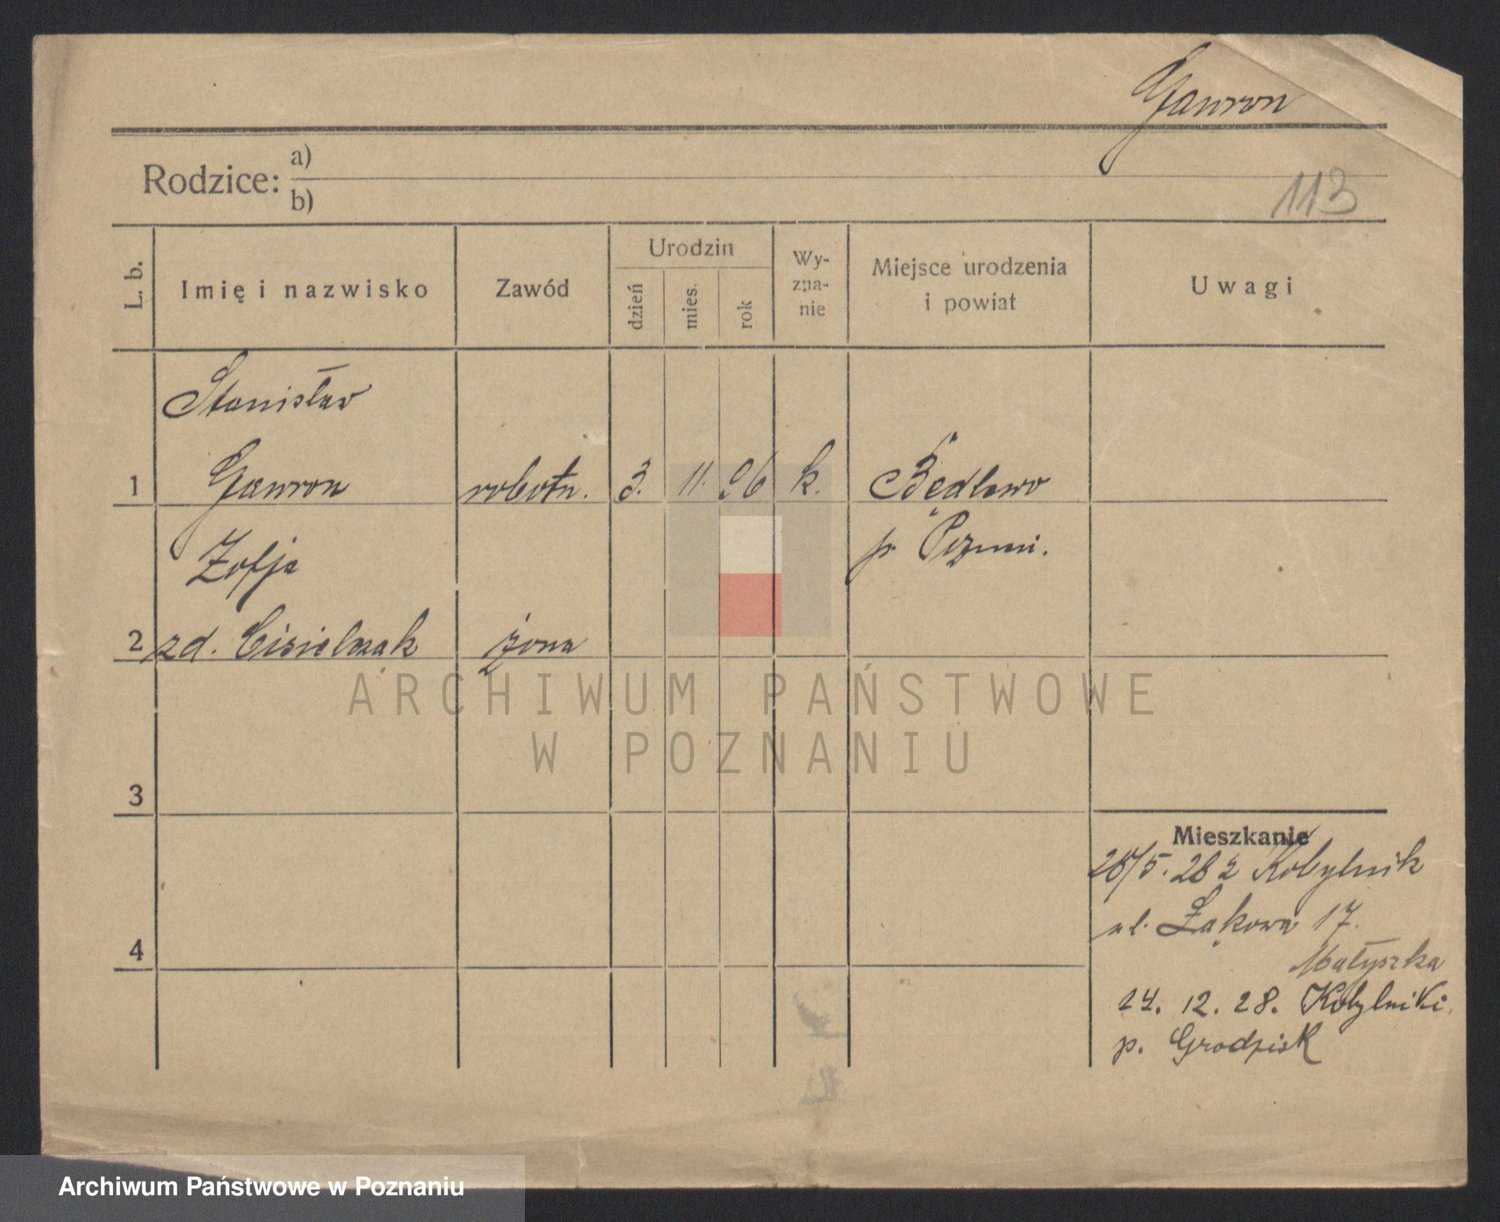 Gawron
Rodzice: a)
b)
113
L. b. Imię i nazwisko Zawód Urodzin dzień mies. rok Wy-zna-nie Miejsce urodzenia i powiat Uwagi
Stanisław
1 Gawron robotn. 3. 11. 96 k. Będlewo
Zofja p. Poznań.
2 zd. Cisielczak żona
ARCHIWUM PAŃSTWOWE
W POZNANIU
3
Mieszkanie
28/5. 28 z Kobylnik
ul. Łąkowa 17.
4
Małyszka
14. 12. 28. Kobylniki.
p. Grodzisk
Archiwum Państwowe w Poznaniu